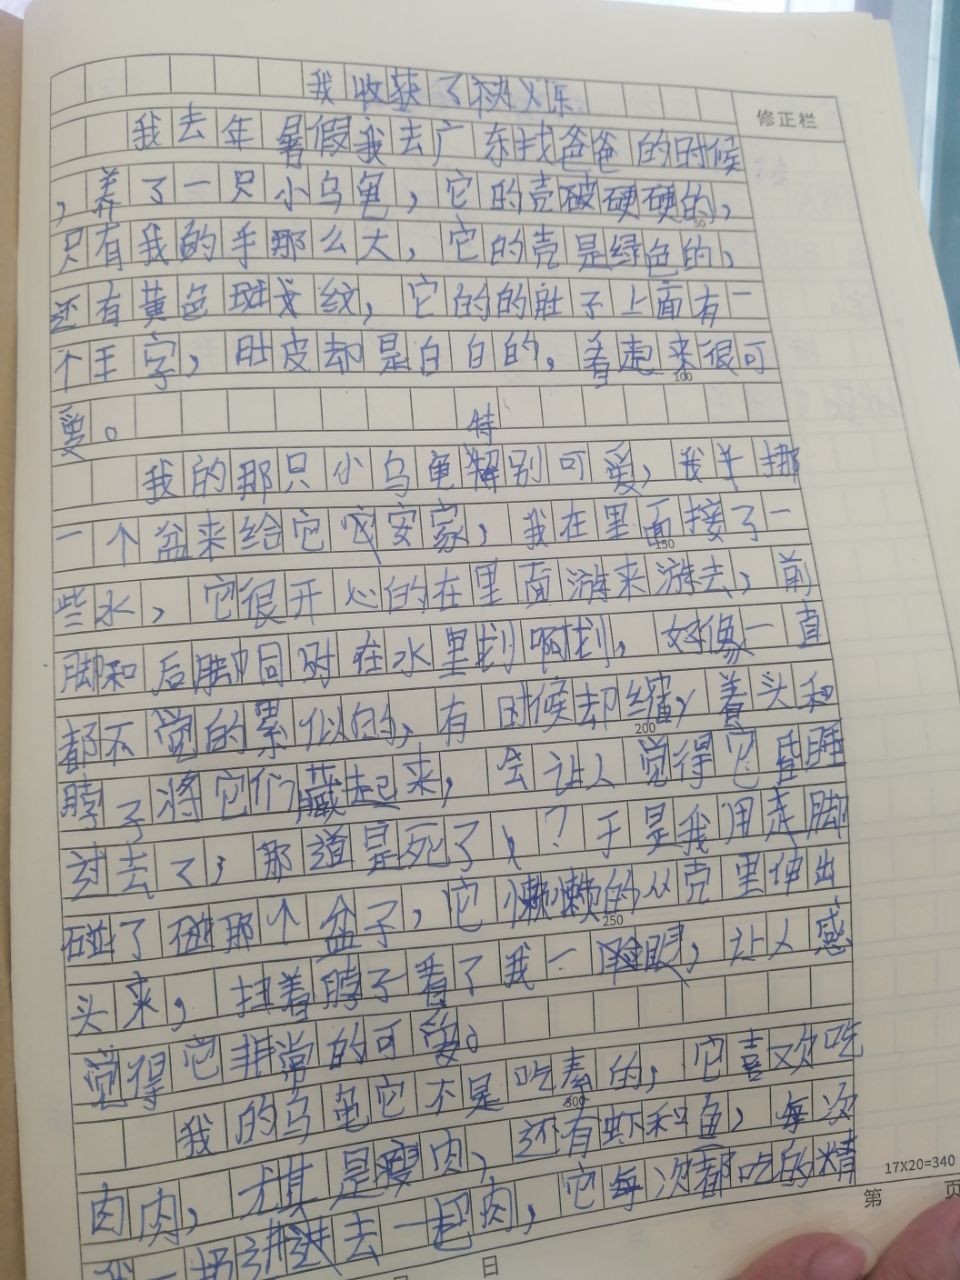 我收获了快乐
修正栏
我去年暑假我去广东找爸爸的时候
，养了一只小乌龟，它的壳破硬硬的，
50
只有我的手那么大，它的壳是绿色的，
还有黄色斑纹，它的的肚子上面有一
个王字，肚皮却是白白的。看起来很可
100
爱。
特
我的那只小乌龟别可爱，我手挪
一个盆来给它安家，我在里面接了一
150
些水，它很开心的在里面游来游去，前
脚和后脚同时在水里划啊划，好像一直
都不觉的累似的，有时候却缩着头和
200
脖子将它们藏起来，会让人觉得它昏睡
过去了，那道是死了、？于是我用走脚
碰了碰那个盆子，它懒懒的从壳里伸出
250
头来，扭着脖子看了我一眼，让人感
觉得它非常的可爱。
我的乌龟它不是吃素的，它喜欢吃
300
肉肉，尤其是瘦肉，还有虾和鱼，每次
我一扔进去一起肉，它每次都吃的精
17X20=340
第 页
日